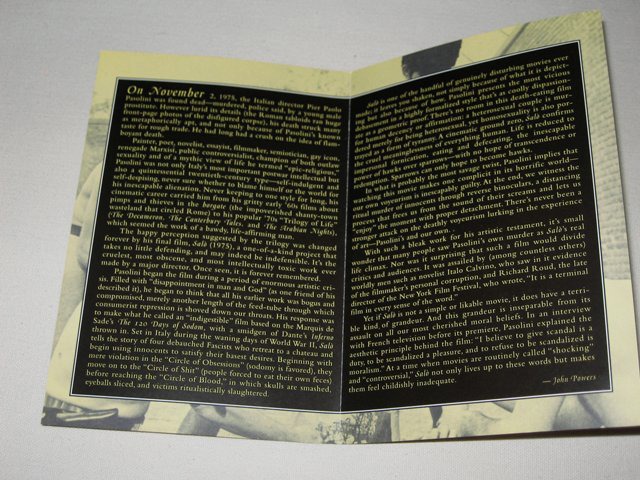 On November 2, 1975, the Italian director Pier Paolo
Pasolini was found dead—murdered, police said, by a young male
prostitute. However lurid its details (the Roman tabloids ran huge
front-page photos of the disfigured corpse), his death struck many
as metaphorically apt, and not only because of Pasolini's known
taste for rough trade. He had long had a crush on the idea of flam-
boyant death.
Painter, poet, novelist, essayist, filmmaker, semiotician, gay icon,
renegade Marxist, public controversialist, champion of both outlaw
sexuality and of a mythic view of life he termed "epic-religious,"
Pasolini was not only Italy's most important postwar intellectual but
also a quintessential twentieth-century type—self-indulgent and
self-despising, never sure whether to blame himself or the world for
his inescapable alienation. Never keeping to one style for long, his
cinematic career carried him from his gritty early '60s films about
pimps and thieves in the borgate (the impoverished shanty-town
wasteland that circled Rome) to his popular '70s "Trilogy of Life"
(The Decameron, The Canterbury Tales, and The Arabian Nights),
which seemed the work of a bawdy, life-affirming man.
The happy perception suggested by the trilogy was changed
forever by his final film, Salò (1975), a one-of-a-kind project that
takes no little defending, and may indeed be indefensible. It's the
cruelest, most obscene, and most intellectually toxic work ever
made by a major director. Once seen, it is forever remembered.
Pasolini began the film during a period of enormous artistic cri-
sis. Filled with "disappointment in man and God" (as one friend of his
described it), he began to think that all his earlier work was bogus and
compromised, merely another length of the feed-tube through which
consumerist repression is shoved down our throats. His response was
to make what he called an "indigestible" film based on the Marquis de
Sade's The 120 Days of Sodom, with a smidgen of Dante's Inferno
thrown in. Set in Italy during the waning days of World War II, Salò
tells the story of four debauched Fascists who retreat to a chateau and
begin using innocents to satisfy their basest desires. Beginning with
mere violation in the "Circle of Obsessions" (sodomy is favored), they
move on to the "Circle of Shit" (people forced to eat their own feces)
before reaching the "Circle of Blood," in which skulls are smashed,
eyeballs sliced, and victims ritualistically slaughtered.
Salò is one of the handful of genuinely disturbing movies ever
made; it leaves you shaken, not simply because of what it is depict-
ing but also because of how. Pasolini presents the most vicious
behavior in a highly formalized style that's as coolly dispassion-
ate as a geometric proof. There's no room in this devastating film
for human decency or affirmation; a heterosexual couple is mur-
dered merely for being heterosexual, yet homosexuality is also por-
trayed as a form of tyranny. A cinematic ground zero, Salò confirms
the cruel meaninglessness of everything human. Life is reduced to
imperial fornication, eating and defecating, the inescapable
power of hawks over sparrows—with no hope of transcendence or
redemption. Sparrows can only hope to become hawks.
In what is probably the most savage twist, Pasolini implies that
watching this movie makes one complicit in its horrific world—
our own voyeurism is inescapably guilty. At the end, we witness the
ritual murder of innocents through reverse binoculars, a distancing
process that spares us from the sound of their screams and lets us
"enjoy" the moment with proper detachment. There's never been a
stronger attack on the deathly voyeurism lurking in the experience
of art—Pasolini's and our own.
With such a bleak work for his artistic testament, it's small
wonder that many people saw Pasolini's own murder as Salò's real
life climax. Nor was it surprising that such a film would divide
critics and audiences. It was assailed by (among countless others)
worldly men such as novelist Italo Calvino, who saw in it evidence
of the filmmaker's personal corruption, and Richard Roud, the late
director of the New York Film Festival, who wrote, "It is a terminal
film in every sense of the word."
Yet if Salò is not a simple or likable movie, it does have a terri-
ble kind of grandeur. And this grandeur is inseparable from its
assault on all our most cherished moral beliefs. In an interview
with French television before its premiere, Pasolini explained the
aesthetic principle behind the film: "I believe to give scandal is a
duty, to be scandalized a pleasure, and to refuse to be scandalized is
moralism." At a time when movies are routinely called "shocking,"
and "controversial," Salò not only lives up to these words but makes
them feel childishly inadequate.
— John Powers